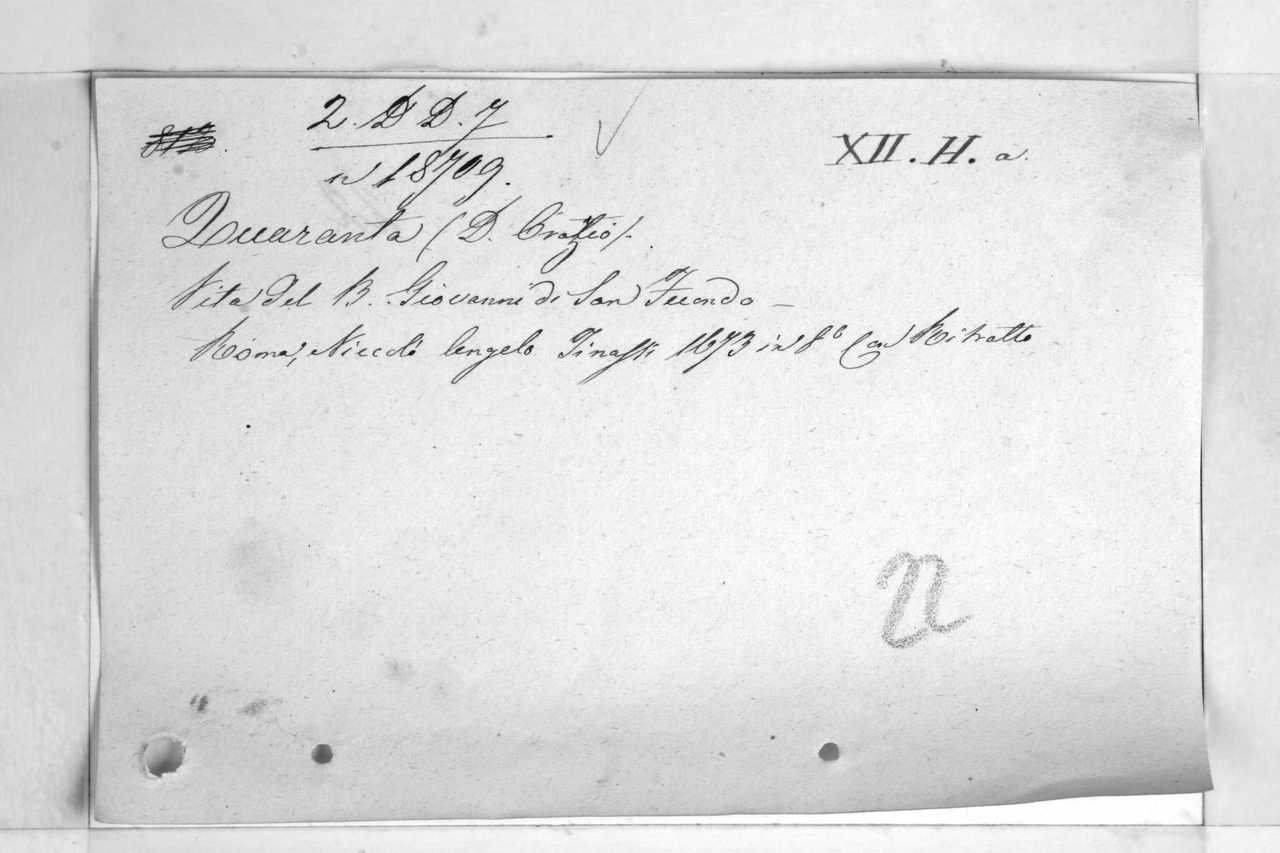 2. D D. 7
XII. H. a.
n 18709.
Quaranta (D. Orazio).
Vita del B. Giovanni di San Fecondo –
Roma, Niccolò Angelo Tinassi 1673 in 8º Con Ritratto
22